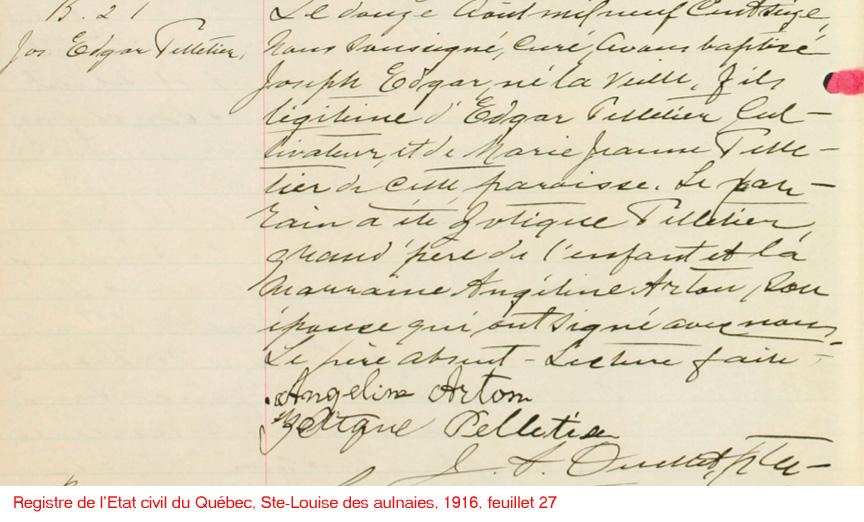 B. 21
Jos. Edgar Pelletier,
Le douze Août mil neuf cent seize,
Nous soussigné, curé, avons baptisé
Joseph Edgar, né la veille, fils
légitime d'Edgar Pelletier, Cul-
tivateur, et de Marie Jeanne Pelle-
tier de cette paroisse. Le par-
rain a été Zotique Pelletier
grand'père de l'enfant et la
marraine Angéline Arton, son
épouse qui ont signé avec nous.
Le père absent - Lecture faite -
Angelina Arton
Zotique Pelletier
J. A. Ouellet, ptre -
Registre de l'Etat civil du Québec, Ste-Louise des aulnaies, 1916, feuillet 27